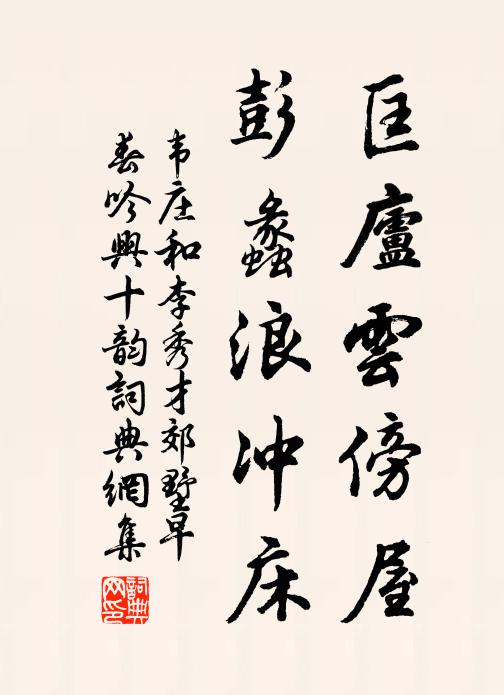 匡廬雲傍屋
彭蠡浪冲床
韦庄和李秀才郊墅早
春吟興十韵詞典網集
詞典
网印